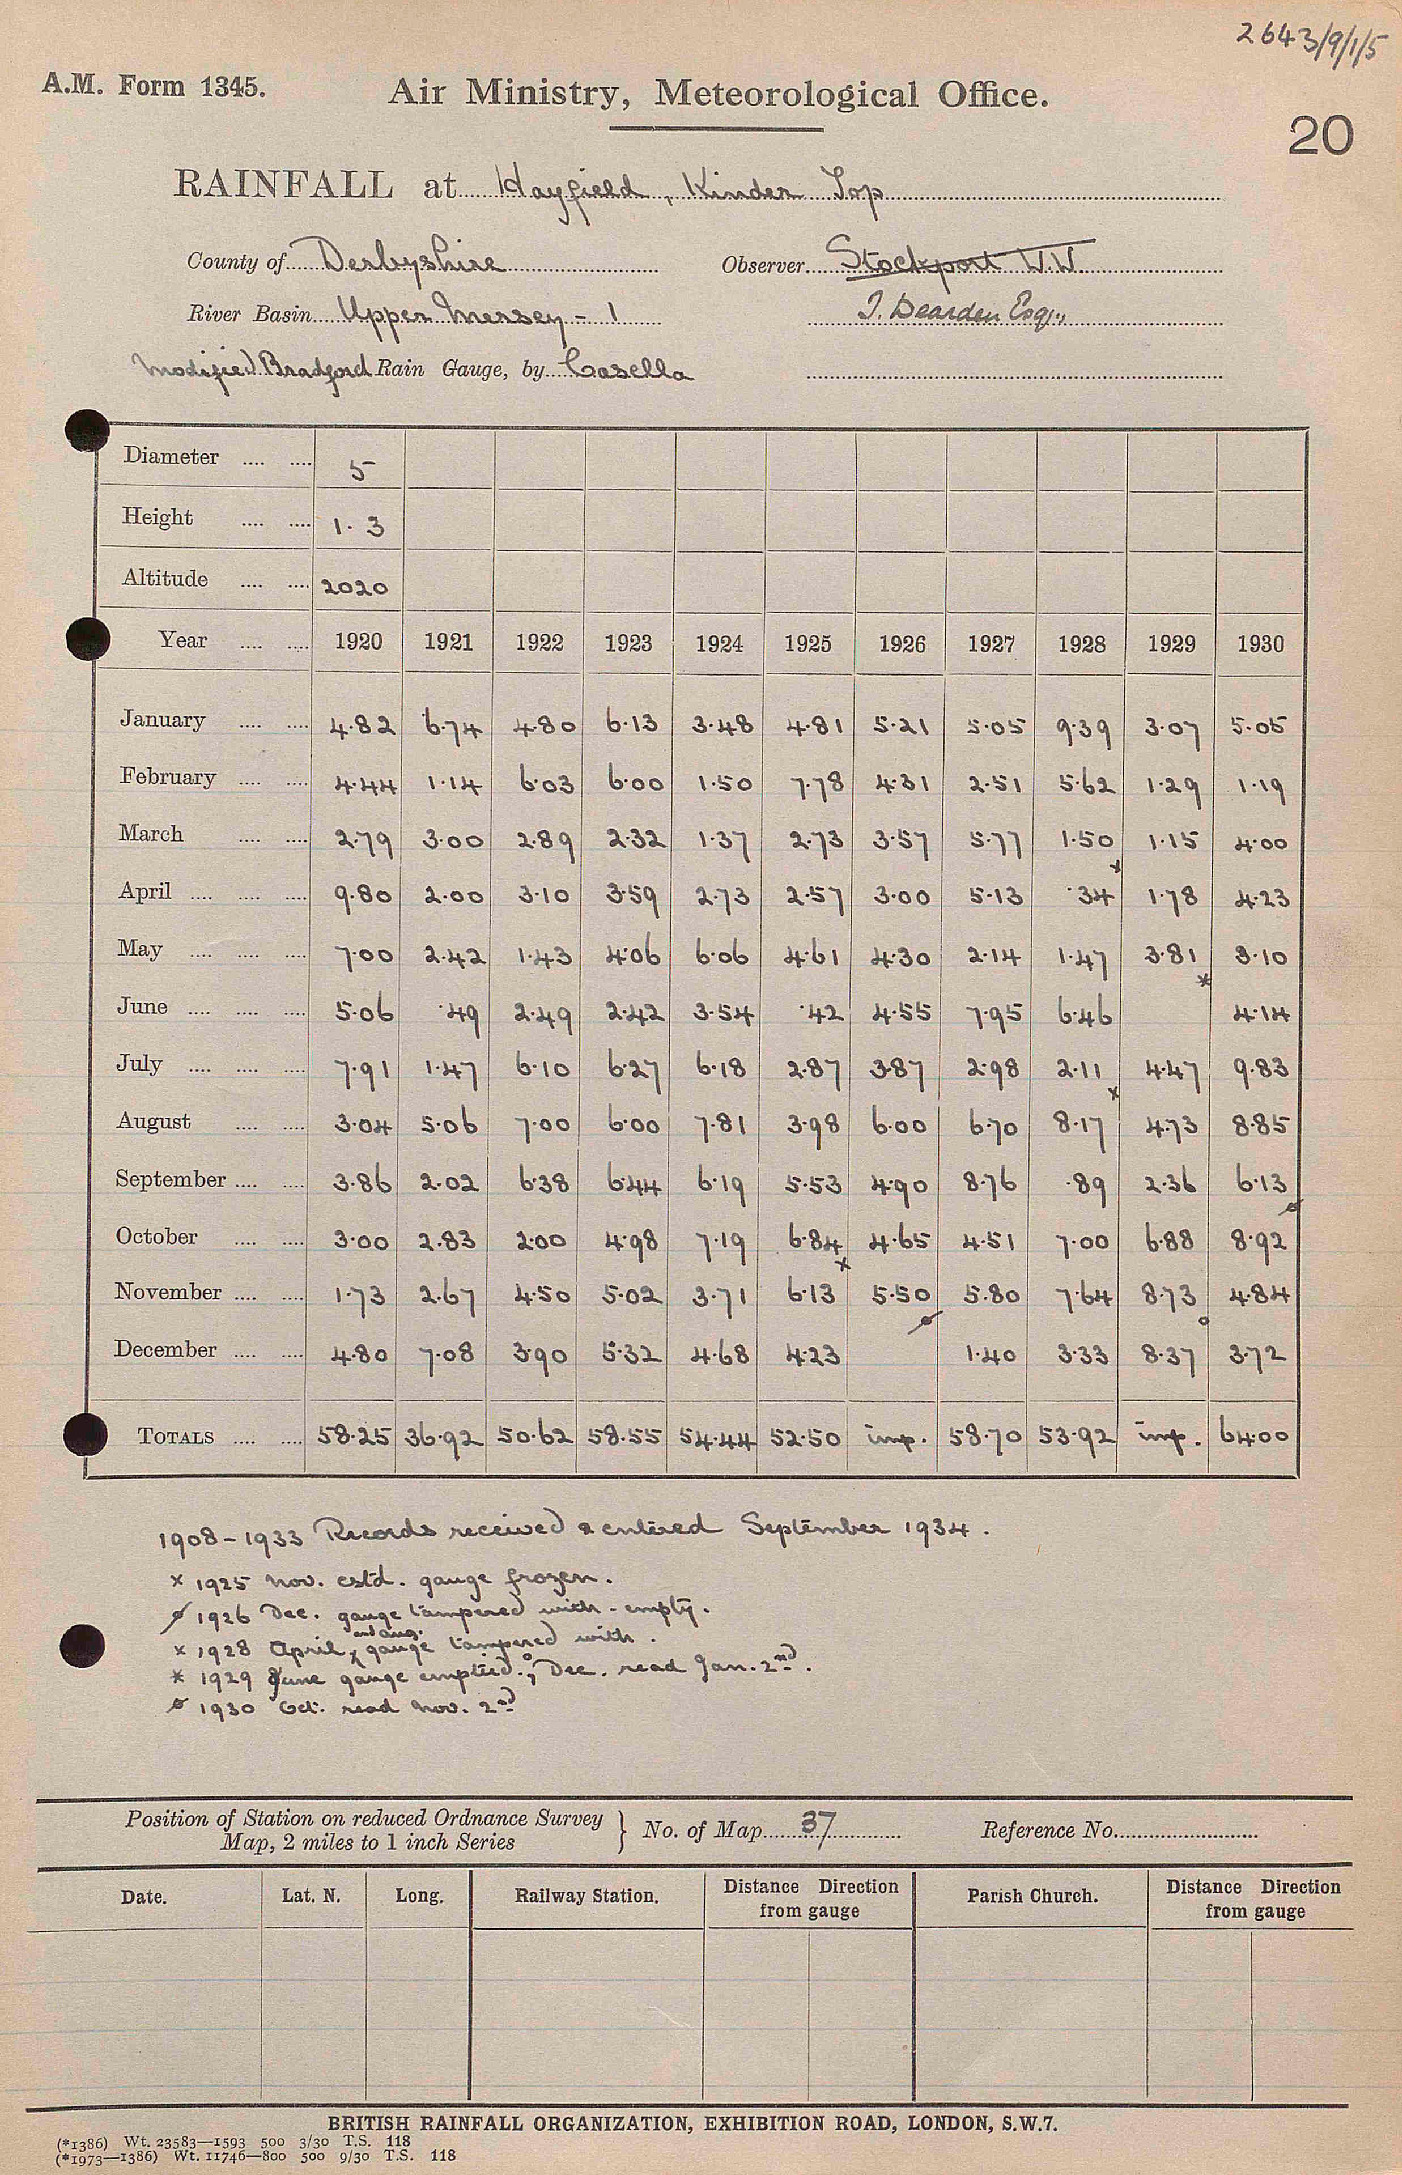 2643/9/1/5
A.M. Form 1345.
Air Ministry, Meteorological Office.
20
RAINFALL at Hayfield, Kinder Top
County of Derbyshire Observer Stockport W.W
River Basin Upper Mersey - 1 J. Dearden Esq.,
Modified Bradford Rain Gauge, by Casella
Diameter .... .... 5
Height .... .... 1.3
Altitude .... .... 2020
Year .... .... 1920 1921 1922 1923 1924 1925 1926 1927 1928 1929 1930
January .... .... 4.82 6.74 4.80 6.13 3.48 4.81 5.21 5.05 9.39 3.07 5.05
February .... .... 4.44 1.14 6.03 6.00 1.50 7.78 4.31 2.51 5.62 1.29 1.19
March .... .... 2.79 3.00 2.89 2.32 1.37 2.73 3.57 5.77 1.50 1.15 4.00
April .... .... .... 9.80 2.00 3.10 3.59 2.73 2.57 3.00 5.13 .34 x 1.78 4.23
May .... .... .... 7.00 2.42 1.43 4.06 6.06 4.61 4.30 2.14 1.47 3.81 3.10
June .... .... .... 5.06 .49 2.49 2.42 3.54 .42 4.55 7.95 6.46 * 4.14
July .... .... .... 7.91 1.47 6.10 6.27 6.18 2.87 3.87 2.98 2.11 4.47 9.83
August .... .... 3.04 5.06 7.00 6.00 7.81 3.98 6.00 6.70 8.17 x 4.73 8.85
September .... .... 3.86 2.02 6.38 6.44 6.19 5.53 4.90 8.76 .89 2.36 6.13
October .... .... 3.00 2.83 2.00 4.98 7.19 6.84 4.65 4.51 7.00 6.88 8.92 ø
November .... .... 1.73 2.67 4.50 5.02 3.71 6.13 x 5.50 5.80 7.64 8.73 4.84
December .... .... 4.80 7.08 3.90 5.32 4.68 4.23 ø 1.40 3.33 8.37 ° 3.72
TOTALS .... .... 58.25 36.92 50.62 58.55 54.44 52.50 imp. 58.70 53.92 imp. 64.00
1908-1933 Records received & entered September 1934.
x 1925 Nov. estd. gauge frozen.
ø 1926 Dec. gauge tampered with - empty.
x 1928 April and aug. gauge tampered with.
* 1929 June gauge emptied. °; Dec. read Jan. 2nd.
ø 1930 Oct. read Nov. 2nd
Position of Station on reduced Ordnance Survey
Map, 2 miles to 1 inch Series } No. of Map 37 Reference No.
Date. Lat. N. Long. Railway Station. Distance Direction from gauge Parish Church. Distance Direction from gauge
BRITISH RAINFALL ORGANIZATION, EXHIBITION ROAD, LONDON, S.W.7.
(*1386) Wt. 23583—1593 500 3/30 T.S. 118
(*1973—1386) Wt. 11746—800 500 9/30 T.S. 118